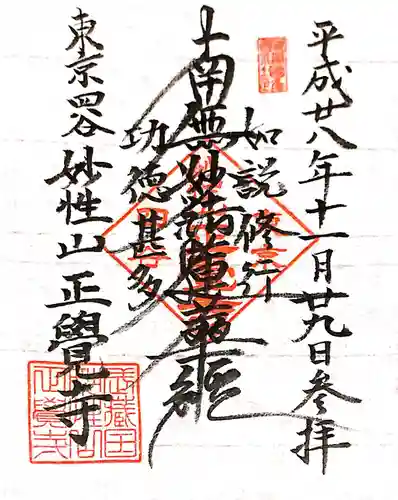 平成廿八年十一月廿九日参拝
如説修行
南無妙法蓮華経
功徳甚多
東京四谷妙性山正覺寺